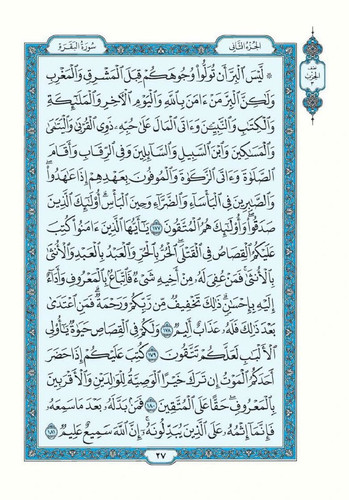 سُورَةُ البَقَرَةِ
الجُزْءُ الثَّانِي
نصف
الحزب
٣
۞ لَّيْسَ ٱلْبِرَّ أَن تُوَلُّوا۟ وُجُوهَكُمْ قِبَلَ ٱلْمَشْرِقِ وَٱلْمَغْرِبِ
وَلَٰكِنَّ ٱلْبِرَّ مَنْ ءَامَنَ بِٱللَّهِ وَٱلْيَوْمِ ٱلْءَاخِرِ وَٱلْمَلَٰٓئِكَةِ
وَٱلْكِتَٰبِ وَٱلنَّبِيِّـۧنَ وَءَاتَى ٱلْمَالَ عَلَىٰ حُبِّهِۦ ذَوِى ٱلْقُرْبَىٰ وَٱلْيَتَٰمَىٰ
وَٱلْمَسَٰكِينَ وَٱبْنَ ٱلسَّبِيلِ وَٱلسَّآئِلِينَ وَفِى ٱلرِّقَابِ وَأَقَامَ
ٱلصَّلَوٰةَ وَءَاتَى ٱلزَّكَوٰةَ وَٱلْمُوفُونَ بِعَهْدِهِمْ إِذَا عَٰهَدُوا۟ ۖ
وَٱلصَّٰبِرِينَ فِى ٱلْبَأْسَآءِ وَٱلضَّرَّآءِ وَحِينَ ٱلْبَأْسِ ۗ أُو۟لَٰٓئِكَ ٱلَّذِينَ
صَدَقُوا۟ ۖ وَأُو۟لَٰٓئِكَ هُمُ ٱلْمُتَّقُونَ ١٧٧ يَٰٓأَيُّهَا ٱلَّذِينَ ءَامَنُوا۟ كُتِبَ
عَلَيْكُمُ ٱلْقِصَاصُ فِى ٱلْقَتْلَى ۖ ٱلْحُرُّ بِٱلْحُرِّ وَٱلْعَبْدُ بِٱلْعَبْدِ وَٱلْأُنثَىٰ
بِٱلْأُنثَىٰ ۚ فَمَنْ عُفِىَ لَهُۥ مِنْ أَخِيهِ شَىْءٌ فَٱتِّبَاعٌۢ بِٱلْمَعْرُوفِ وَأَدَآءٌ
إِلَيْهِ بِإِحْسَٰنٍ ۗ ذَٰلِكَ تَخْفِيفٌ مِّن رَّبِّكُمْ وَرَحْمَةٌ ۗ فَمَنِ ٱعْتَدَىٰ
بَعْدَ ذَٰلِكَ فَلَهُۥ عَذَابٌ أَلِيمٌ ١٧٨ وَلَكُمْ فِى ٱلْقِصَاصِ حَيَوٰةٌ يَٰٓأُو۟لِى
ٱلْأَلْبَٰبِ لَعَلَّكُمْ تَتَّقُونَ ١٧٩ كُتِبَ عَلَيْكُمْ إِذَا حَضَرَ
أَحَدَكُمُ ٱلْمَوْتُ إِن تَرَكَ خَيْرًا ٱلْوَصِيَّةُ لِلْوَٰلِدَيْنِ وَٱلْأَقْرَبِينَ
بِٱلْمَعْرُوفِ ۖ حَقًّا عَلَى ٱلْمُتَّقِينَ ١٨٠ فَمَنۢ بَدَّلَهُۥ بَعْدَ مَا سَمِعَهُۥ
فَإِنَّمَآ إِثْمُهُۥ عَلَى ٱلَّذِينَ يُبَدِّلُونَهُۥٓ ۚ إِنَّ ٱللَّهَ سَمِيعٌ عَلِيمٌ ١٨١
٢٧